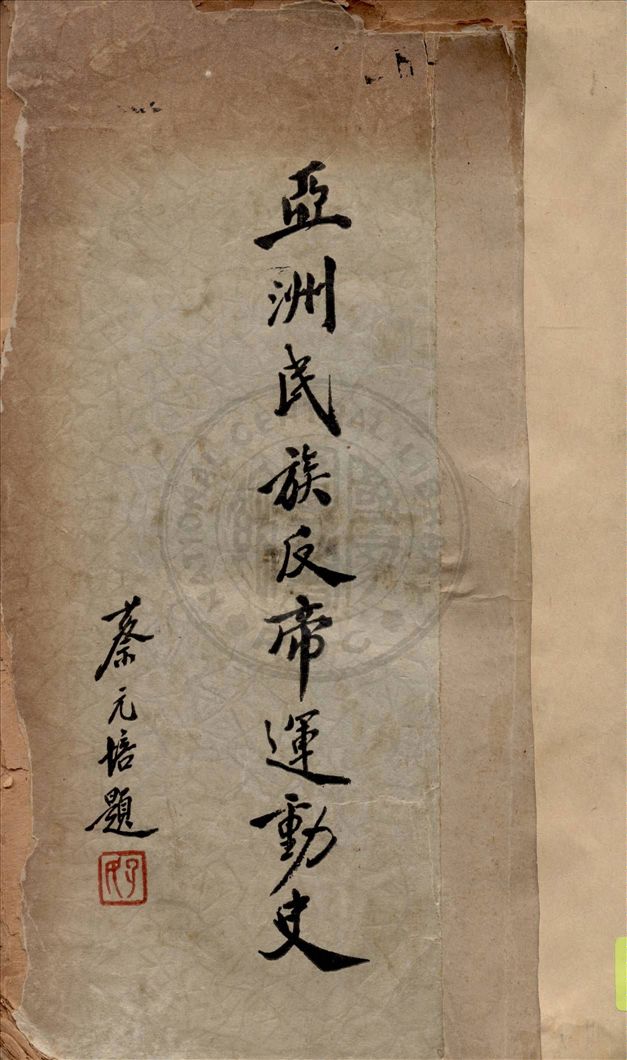 亞洲民族反帝運動史
蔡元培題
NATIONAL CENTRAL LIBRARY